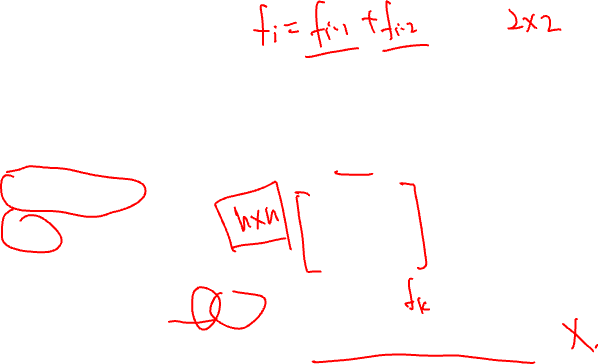 fi = fi-1 + fi-2 2x2
nxn
fk
X.